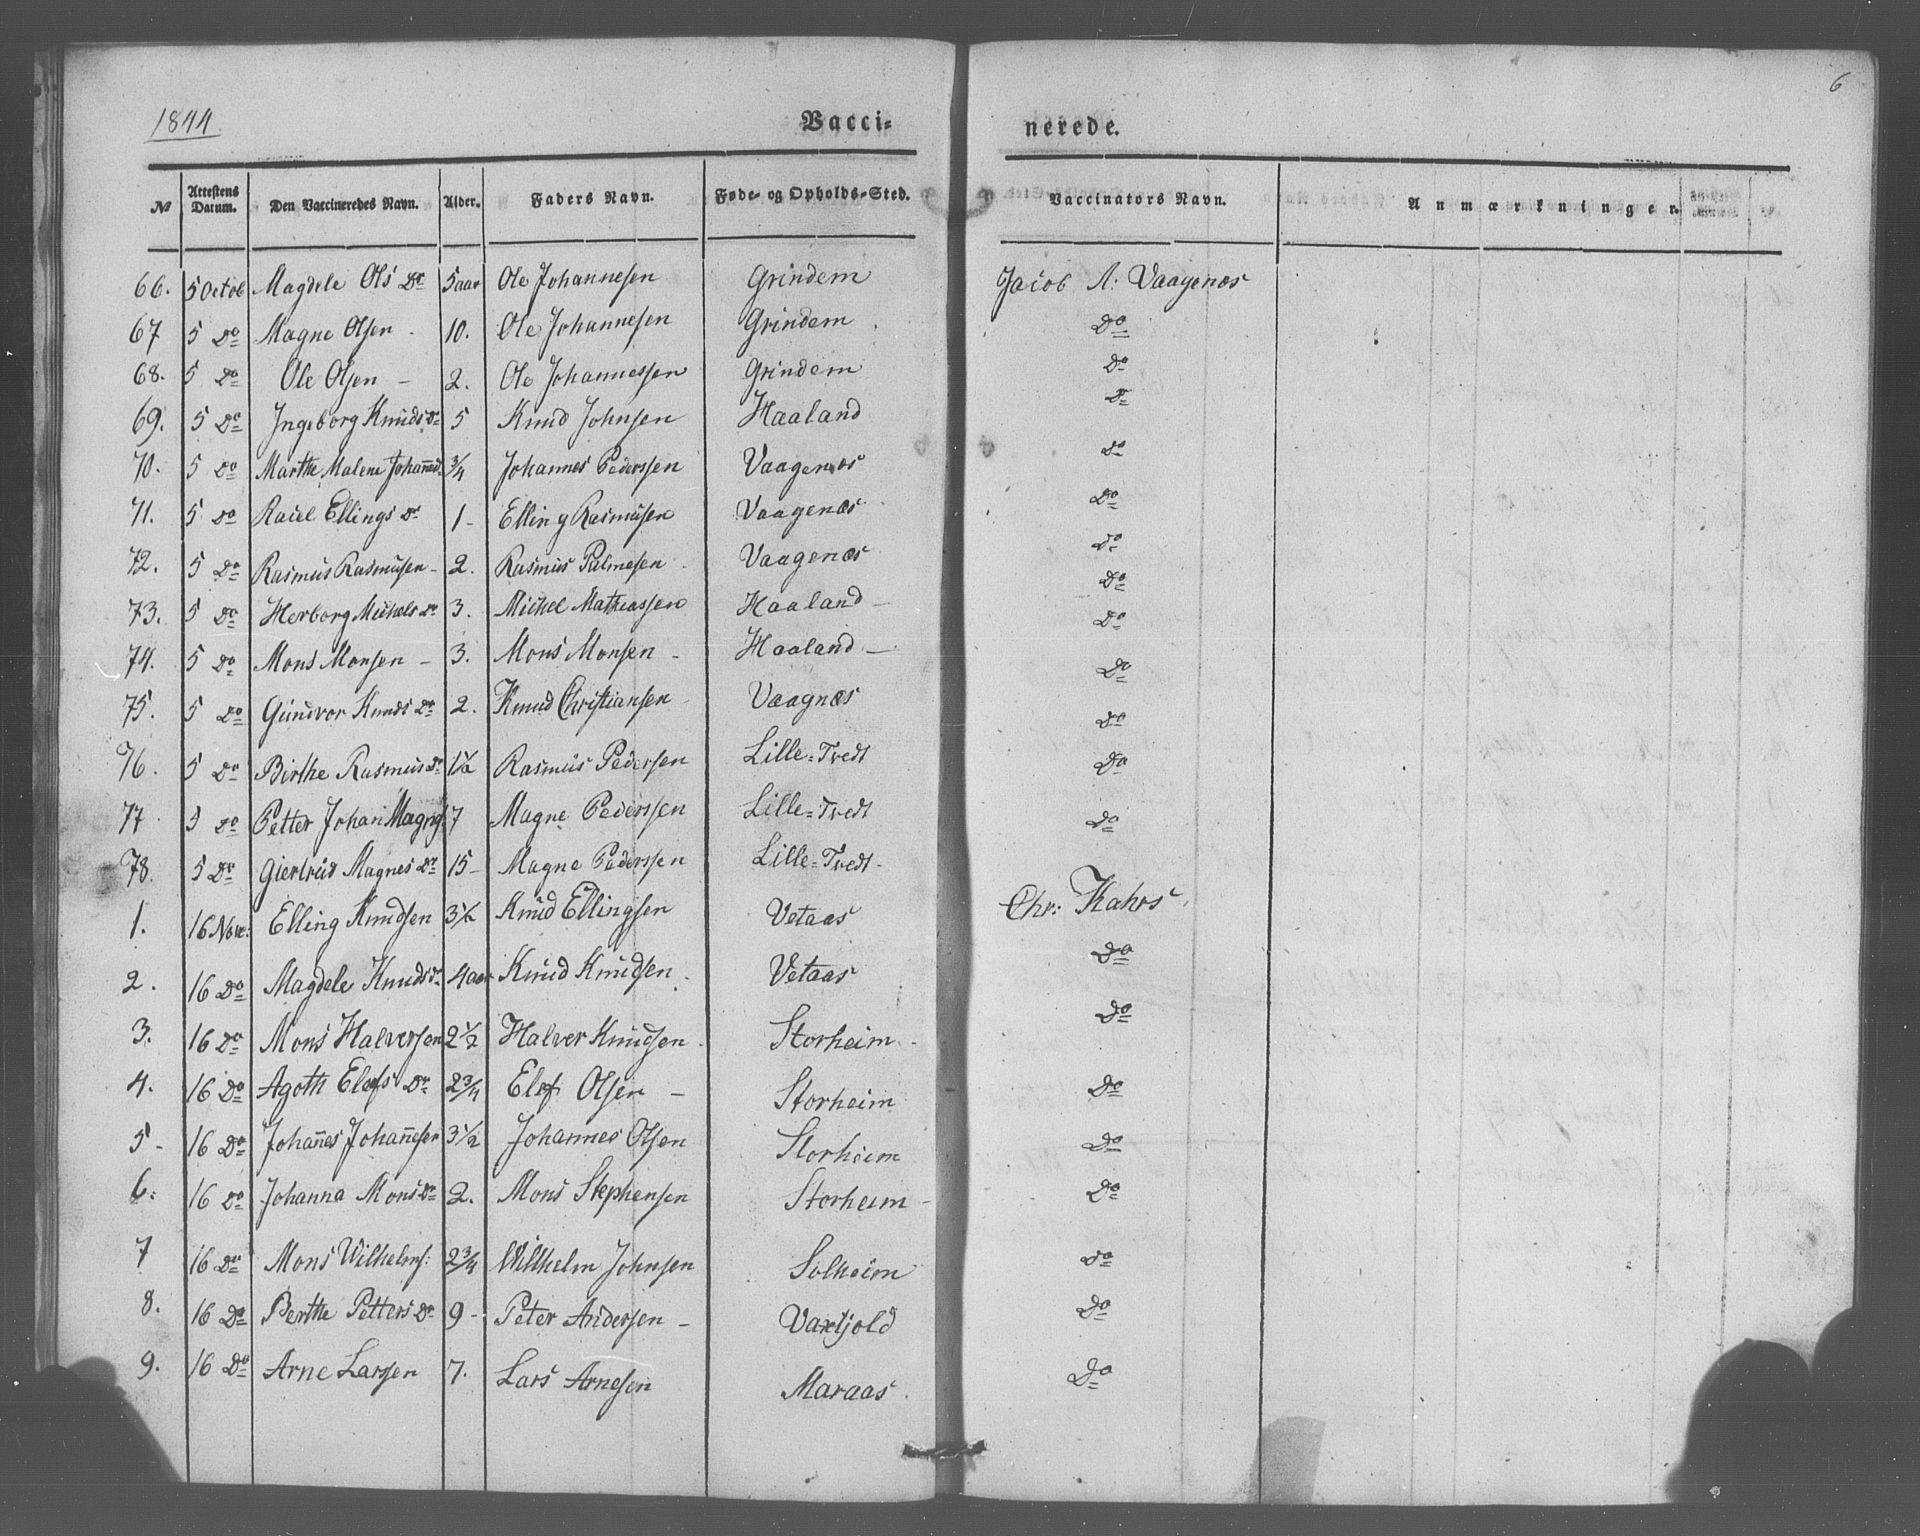 6
1844 Vacci- nerede.
No Attestens Datum. Den Vaccineredes Navn. Alder. Faders Navn. Føde- og Opholds-Sted. Vaccinators Navn. Anmærkninger.
66. 5 Octob Magdele Ols Dr 5 aar Ole Johannesen Grindem Jacob A: Vaagenæs
67 5 Do Magne Olsen - 10. Ole Johannesen Grindem Do
68. 5 Do Ole Olsen - 2. Ole Johannessen Grindem Do
69. 5 Do Ingeborg Knuds Dr 5 Knud Johnsen Haaland Do
70. 5 Do Marthe Malene Johannesd. 3/4 Johannes Pederssen Vaagenæs Do
71. 5 Do Raciel Ellings Dr 1- Elling Rasmusen Vaagenæs Do
72. 5 Do Rasmus Rasmusen - 2. Rasmus Palmesen Vaagenæs Do
73. 5 Do Herborg Michels Dr 3. Michel Mathiassen Haaland - Do
74. 5 Do Mons Monsen - 3. Mons Monsen - Haaland - Do
75. 5 Do Gundvor Knuds Dr 2. Knud Christiansen Vaagnæs Do
76. 5 Do Birthe Rasmus Dr 1 1/2 Rasmus Pedersen Lille-Tvedt Do
77 5 Do Petter Johan Magnes. 7 Magne Pederssen Lille-Tvedt Do
78. 5 Do Giertrud Magnes Dr 15- Magne Pederssen Lille-Tvedt- Do
1. 16 Nove: Elling Knudsen 3 1/2 Knud Ellingsen Vetaas Chr: Kahrs
2. 16 Do Magdele Knuds Dr 4 aar Knud Knudsen. Vetaas Do
3. 16 Do Mons Halversen 2 1/2 Halver Knudsen. Storheim Do
4. 16 Do Agoth Elefs Dr 2 3/4 Elef Olsen - Storheim Do
5- 16 Do Johannes Johannesen 3 1/2 Johannes Olsen Storheim Do
6. 16 Do Johanna Mons Dr 2. Mons Stephensen Storheim - Do
7 16 Do Mons Wilhelms: 2 3/4 Willhelm Johnsen Solheim Do
8. 16 Do Berthe Petters Dr 9- Peter Andersen - Vaxtjold Do
9. 16 Do Arne Larsen 7. Lars Arnesen Maraas. Do